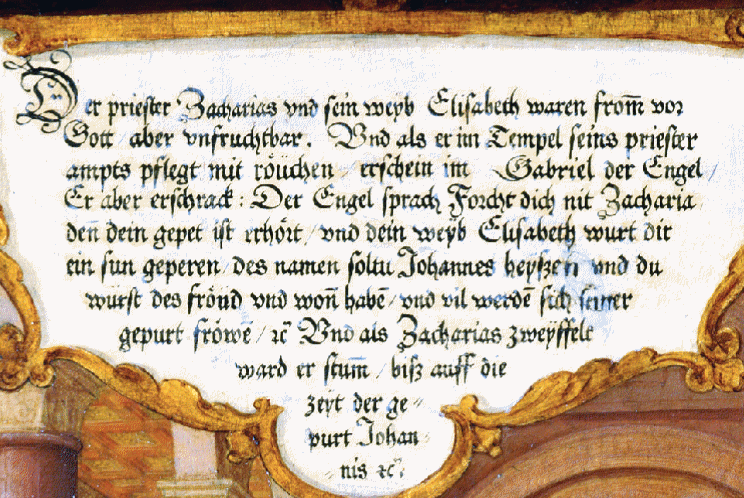 Der priester Zacharias vnd sein weyb Elisabeth waren from̄ vor
Gott / aber vnfruchtbar. Vnd als er im Tempel seins priester
ampts pflegt mit röuchen / erschein im Gabriel der Engel /
Er aber erschrack : Der Engel sprach Forcht dich nit Zacharia
den dein gepet ist erhört / vnd dein weyb Elisabeth wurt dir
ein sun geperen / des namen soltu Johannes heyszen vnd du
würst des fröud vnd won̄ habē / vnd vil werdē sich seiner
gepurt fröwē / ꝛc̄ Vnd als Zacharias zweyffelt
ward er stum̄ / bisz auff die
zeyt der ge-
purt Johan-
nis ꝛc̄